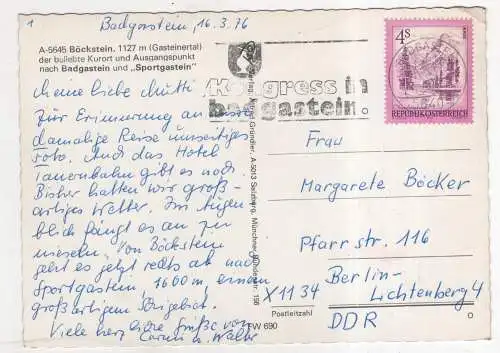 1
Badgastein, 16.3.76
A-5645 Böckstein, 1127 m (Gasteinertal)
der beliebte Kurort und Ausgangspunkt
nach Badgastein und „Sportgastein"
Meine liebe Mutti
Zur Erinnerung an unsre
damalige Reise umseitiges
Foto. Auch das Hotel
Tauernbahn gibt es noch.
Bisher hatten wir groß-
artiges Wetter. Im Augen-
blick fängt es an zu
nieseln. Von Böckstein
geht es jetzt rechts ab nach
Sportgastein, 1600 m, einem
großartigen Skigebiet.
Viele herzliche Grüße von
u. Walter
Kongress in
badgastein
4 S
REPUBLIK ÖSTERREICH
Frau
Margarete Böcker
Pfarrstr. 116
X1134 Berlin-
Lichtenberg 4
Postleitzahl
DDR
A-5013 Salzburg, Münchner Bundesstr. 156
FW 690